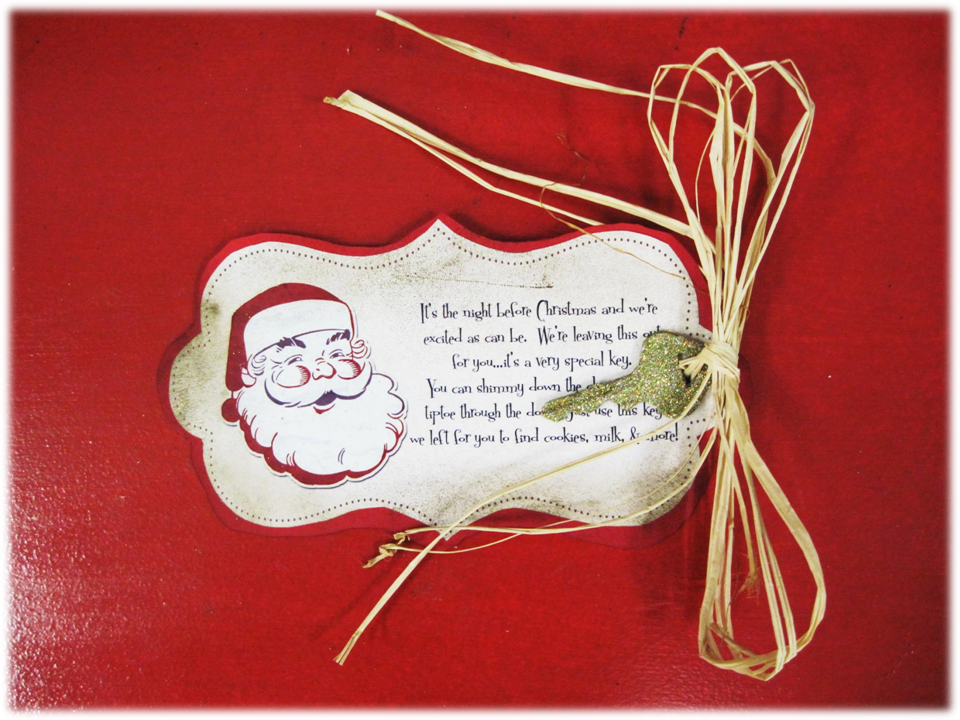 It's the night before Christmas and we're
excited as can be. We're leaving this out
for you...it's a very special key.
You can shimmy down the
tiptoe through the just use this key
we left for you to find cookies, milk, & more!